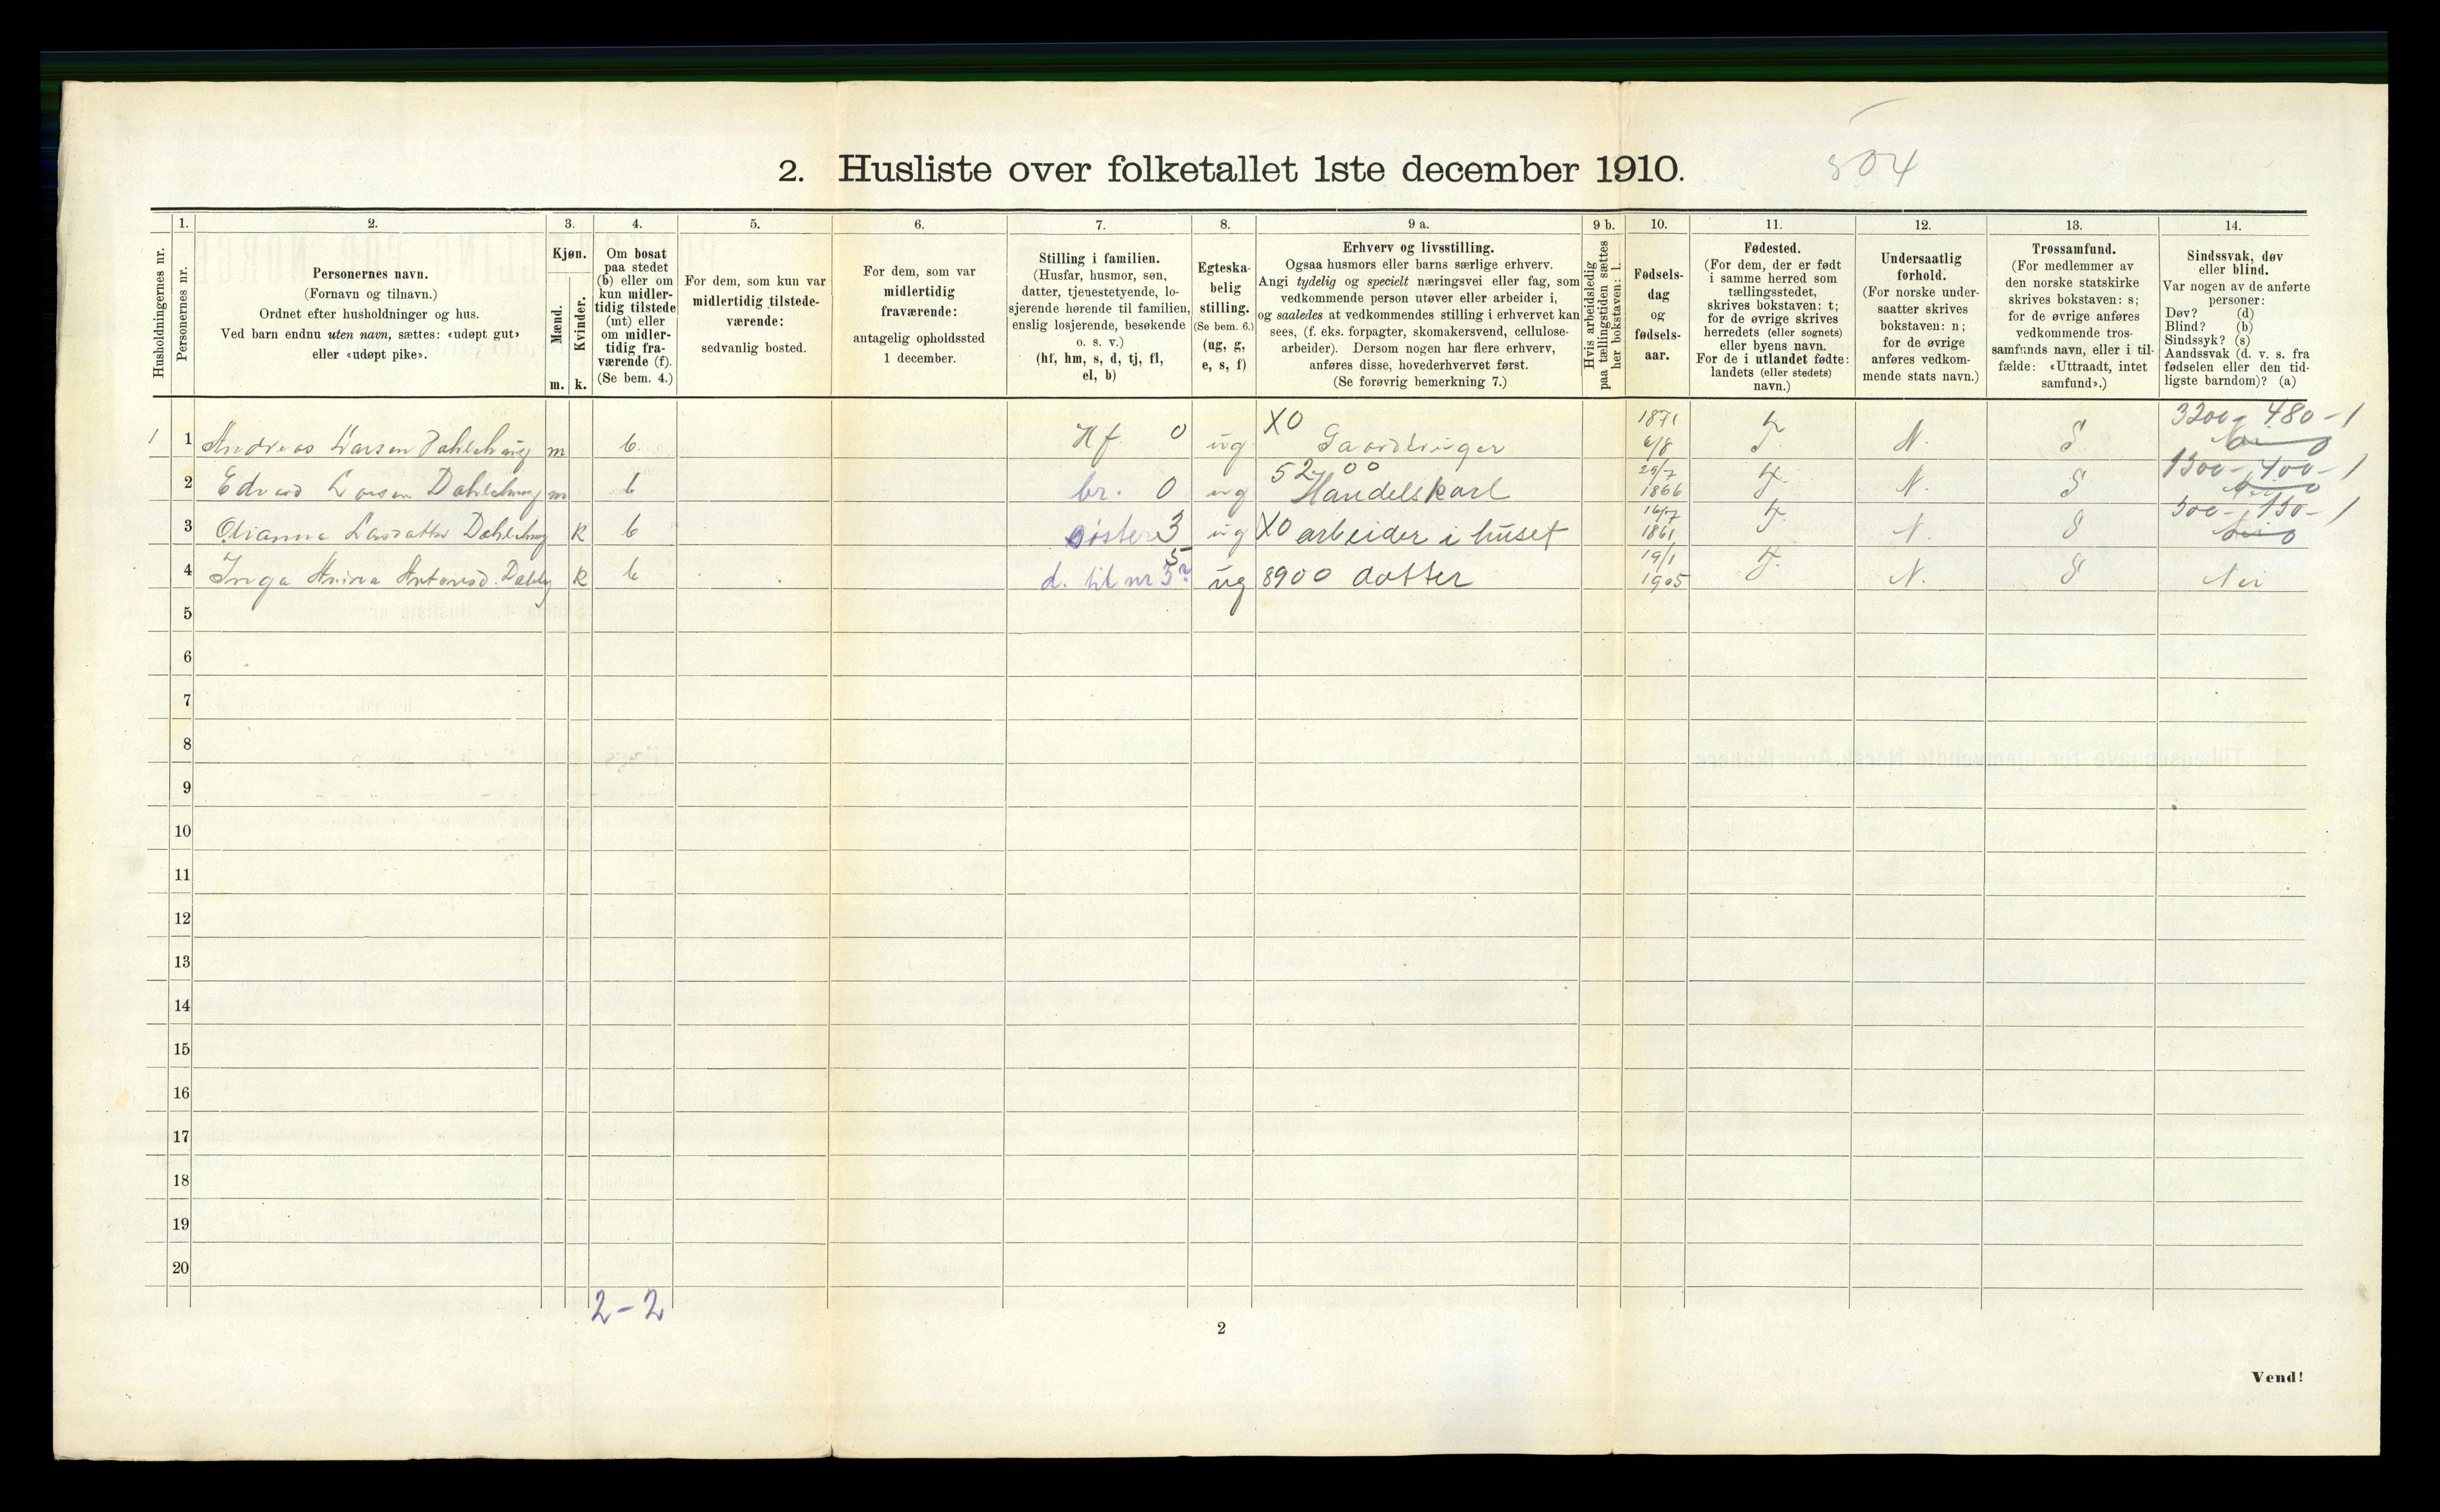 2. Husliste over folketallet 1ste december 1910.
504
Husholdningernes nr.
1.
Personernes nr.
2.
Personernes navn.
(Fornavn og tilnavn.)
Ordnet efter husholdninger og hus.
Ved barn endnu uten navn, sættes: «udøpt gut»
eller «udøpt pike».
3.
Kjøn.
Mænd.
Kvinder.
m. k.
4.
Om bosat
paa stedet
(b) eller om
kun midler-
tidig tilstede
(mt) eller
om midler-
tidig fra-
værende (f).
(Se bem. 4.)
5.
For dem, som kun var
midlertidig tilstede-
værende:
sedvanlig bosted.
6.
For dem, som var
midlertidig
fraværende:
antagelig opholdssted
1 december.
7.
Stilling i familien.
(Husfar, husmor, søn,
datter, tjenestetyende, lo-
sjerende hørende til familien,
enslig losjerende, besøkende
o. s. v.)
(hf, hm, s, d, tj, fl,
el, b)
8.
Egteska-
belig
stilling.
(Se bem. 6.)
(ug, g,
e, s, f)
9 a.
Erhverv og livsstilling.
Ogsaa husmors eller barns særlige erhverv.
Angi tydelig og specielt næringsvei eller fag, som
vedkommende person utøver eller arbeider i,
og saaledes at vedkommendes stilling i erhvervet kan
sees, (f. eks. forpagter, skomakersvend, cellulose-
arbeider). Dersom nogen har flere erhverv,
anføres disse, hovederhvervet først.
(Se forøvrig bemerkning 7.)
9 b.
Hvis arbeidsledig
paa tællingstiden sættes
her bokstaven: l.
10.
Fødsels-
dag
og
fødsels-
aar.
11.
Fødested.
(For dem, der er født
i samme herred som
tællingsstedet,
skrives bokstaven: t;
for de øvrige skrives
herredets (eller sognets)
eller byens navn.
For de i utlandet fødte:
landets (eller stedets)
navn.)
12.
Undersaatlig
forhold.
(For norske under-
saatter skrives
bokstaven: n;
for de øvrige
anføres vedkom-
mende stats navn.)
13.
Trossamfund.
(For medlemmer av
den norske statskirke
skrives bokstaven: s;
for de øvrige anføres
vedkommende tros-
samfunds navn, eller i til-
fælde: «Uttraadt, intet
samfund».)
14.
Sindssvak, døv
eller blind.
Var nogen av de anførte
personer:
Døv? (d)
Blind? (b)
Sindssyk? (s)
Aandssvak (d. v. s. fra
fødselen eller den tid-
ligste barndom)? (a)
1 1 Andreas Larsen Dahlehaug m b. Hf 0 ug X0 Gaardbruger 1871 6/8 T. N. S 3200 - 480 - 1 Nei
2 Edvard Larsen Dahlehaug m b br. 0 ug 5200 Handelskarl 29/7 1866 T. N. S 1300 - 400 - 1 Nei
3 Olianna Larsdatter Dahlehaug k b søster 3 ug X0 arbeider i huset 16/7 1861 T N. S 500 - 150 - 1 Nei
4 Inga Anina Antonsd. k b d. til nr 3 5 ug 8900 datter 19/1 1905 T. N. S Nei
5
6
7
8
9
10
11
12
13
14
15
16
17
18
19
20
2 - 2
2
Vend!